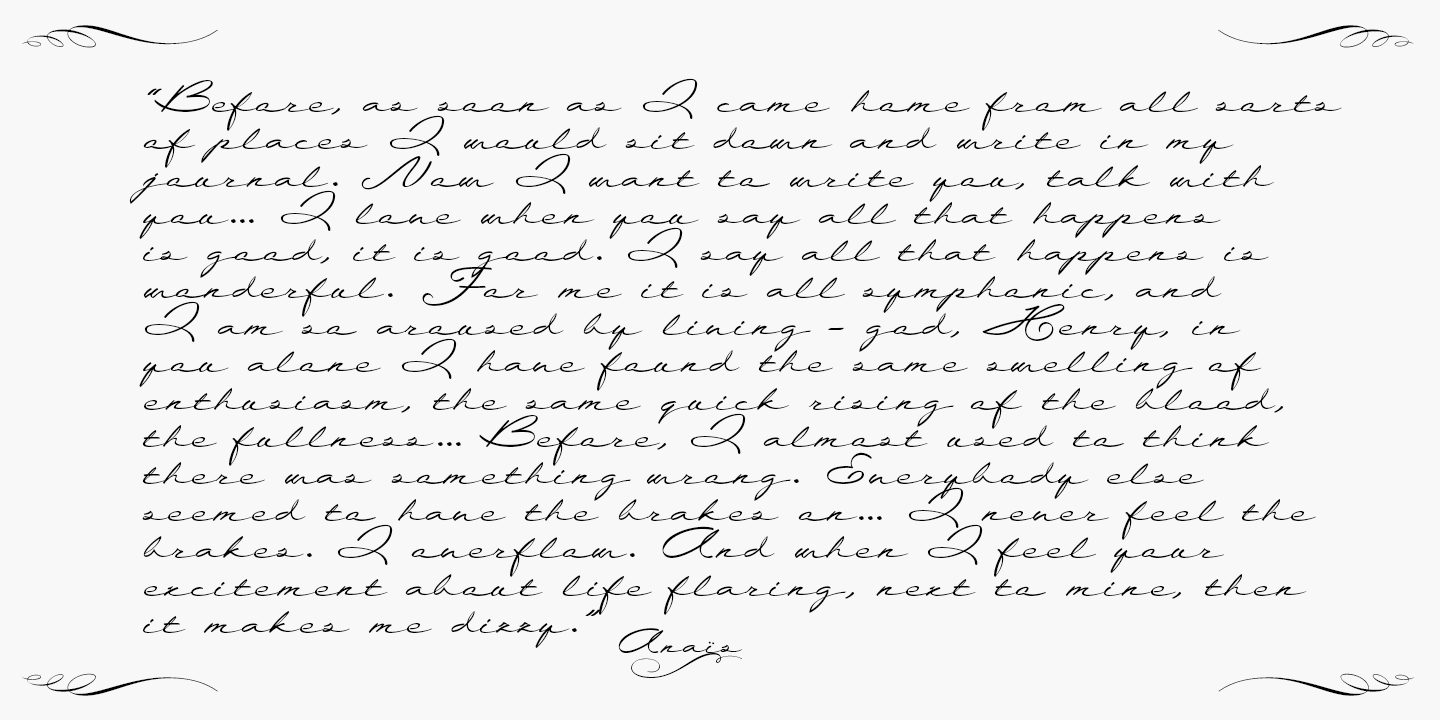 “Before, as soon as I came home from all sorts
of places I would sit down and write in my
journal. Now I want to write you, talk with
you... I love when you say all that happens
is good, it is good. I say all that happens is
wonderful. For me it is all symphonic, and
I am so aroused by living - god, Henry, in
you alone I have found the same swelling of
enthusiasm, the same quick rising of the blood,
the fullness... Before, I almost used to think
there was something wrong. Everybody else
seemed to have the brakes on... I never feel the
brakes. I overflow. And when I feel your
excitement about life flaring, next to mine, then
it makes me dizzy.”
Anaïs